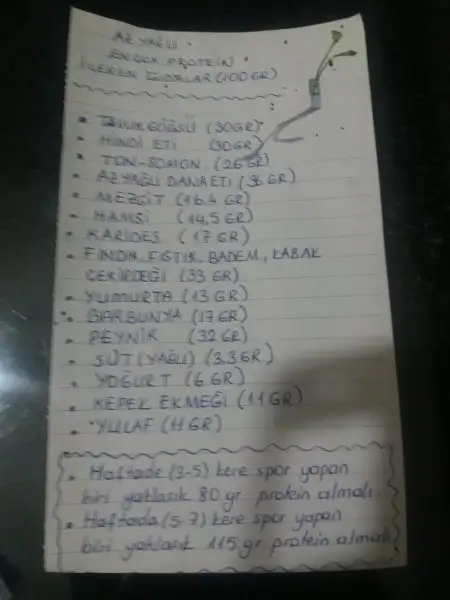 AZ YAĞLI
EN ÇOK PROTEİN
İÇEREN GIDALAR (100 GR)
• TAVUK GÖĞSÜ (30GR)
• HİNDİ ETİ (30GR)
• TON-SOMON (26 GR)
• AZ YAĞLI DANA ETİ (36 GR)
• MEZGİT (16.4 GR)
• HAMSİ (14,5 GR)
• KARİDES (17 GR)
• FINDIK, FISTIK, BADEM, KABAK
ÇEKİRDEĞİ (33 GR)
• YUMURTA (13 GR)
• BARBUNYA (17 GR)
• PEYNİR (32 GR)
• SÜT (YAĞLI) (3.3 GR)
• YOĞURT (6 GR)
• KEPEK EKMEĞİ (11 GR)
• YULAF (11 GR)
• Haftada (3-5) kere spor yapan
biri yaklaşık 80 gr protein almalı
• Haftada (5-7) kere spor yapan
biri yaklaşık 115 gr protein almalı